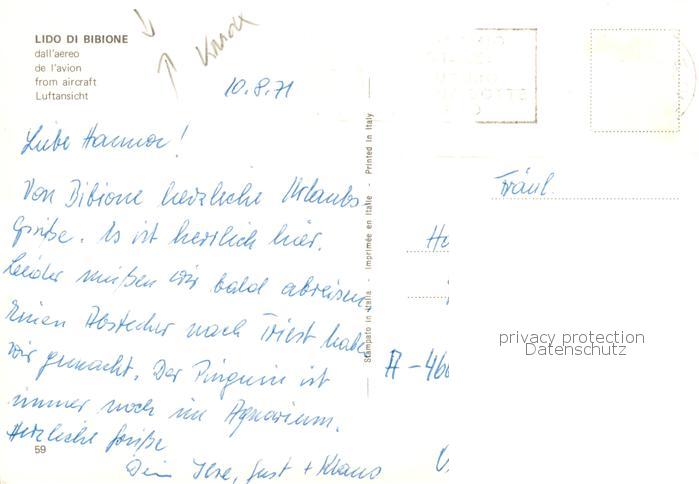 LIDO DI BIBIONE
dall'aereo
de l'avion
from aircraft
Luftansicht
Knick
10.8.71
Liebe Hannor!
Von Bibione herzliche Urlaubs
Grüße. Es ist herrlich hier.
Leider müßen wir bald abreisen.
Einen Abstecher nach Triest haben
wir gemacht. Der Pinguin ist
immer noch im Aquarium.
Herzliche Grüße
Dein Ilse, Gust + Klaus
59
Stampato in Italia - Imprimée en Italie - Printed in Italy
Fräul.
A-460
privacy protection
Datenschutz